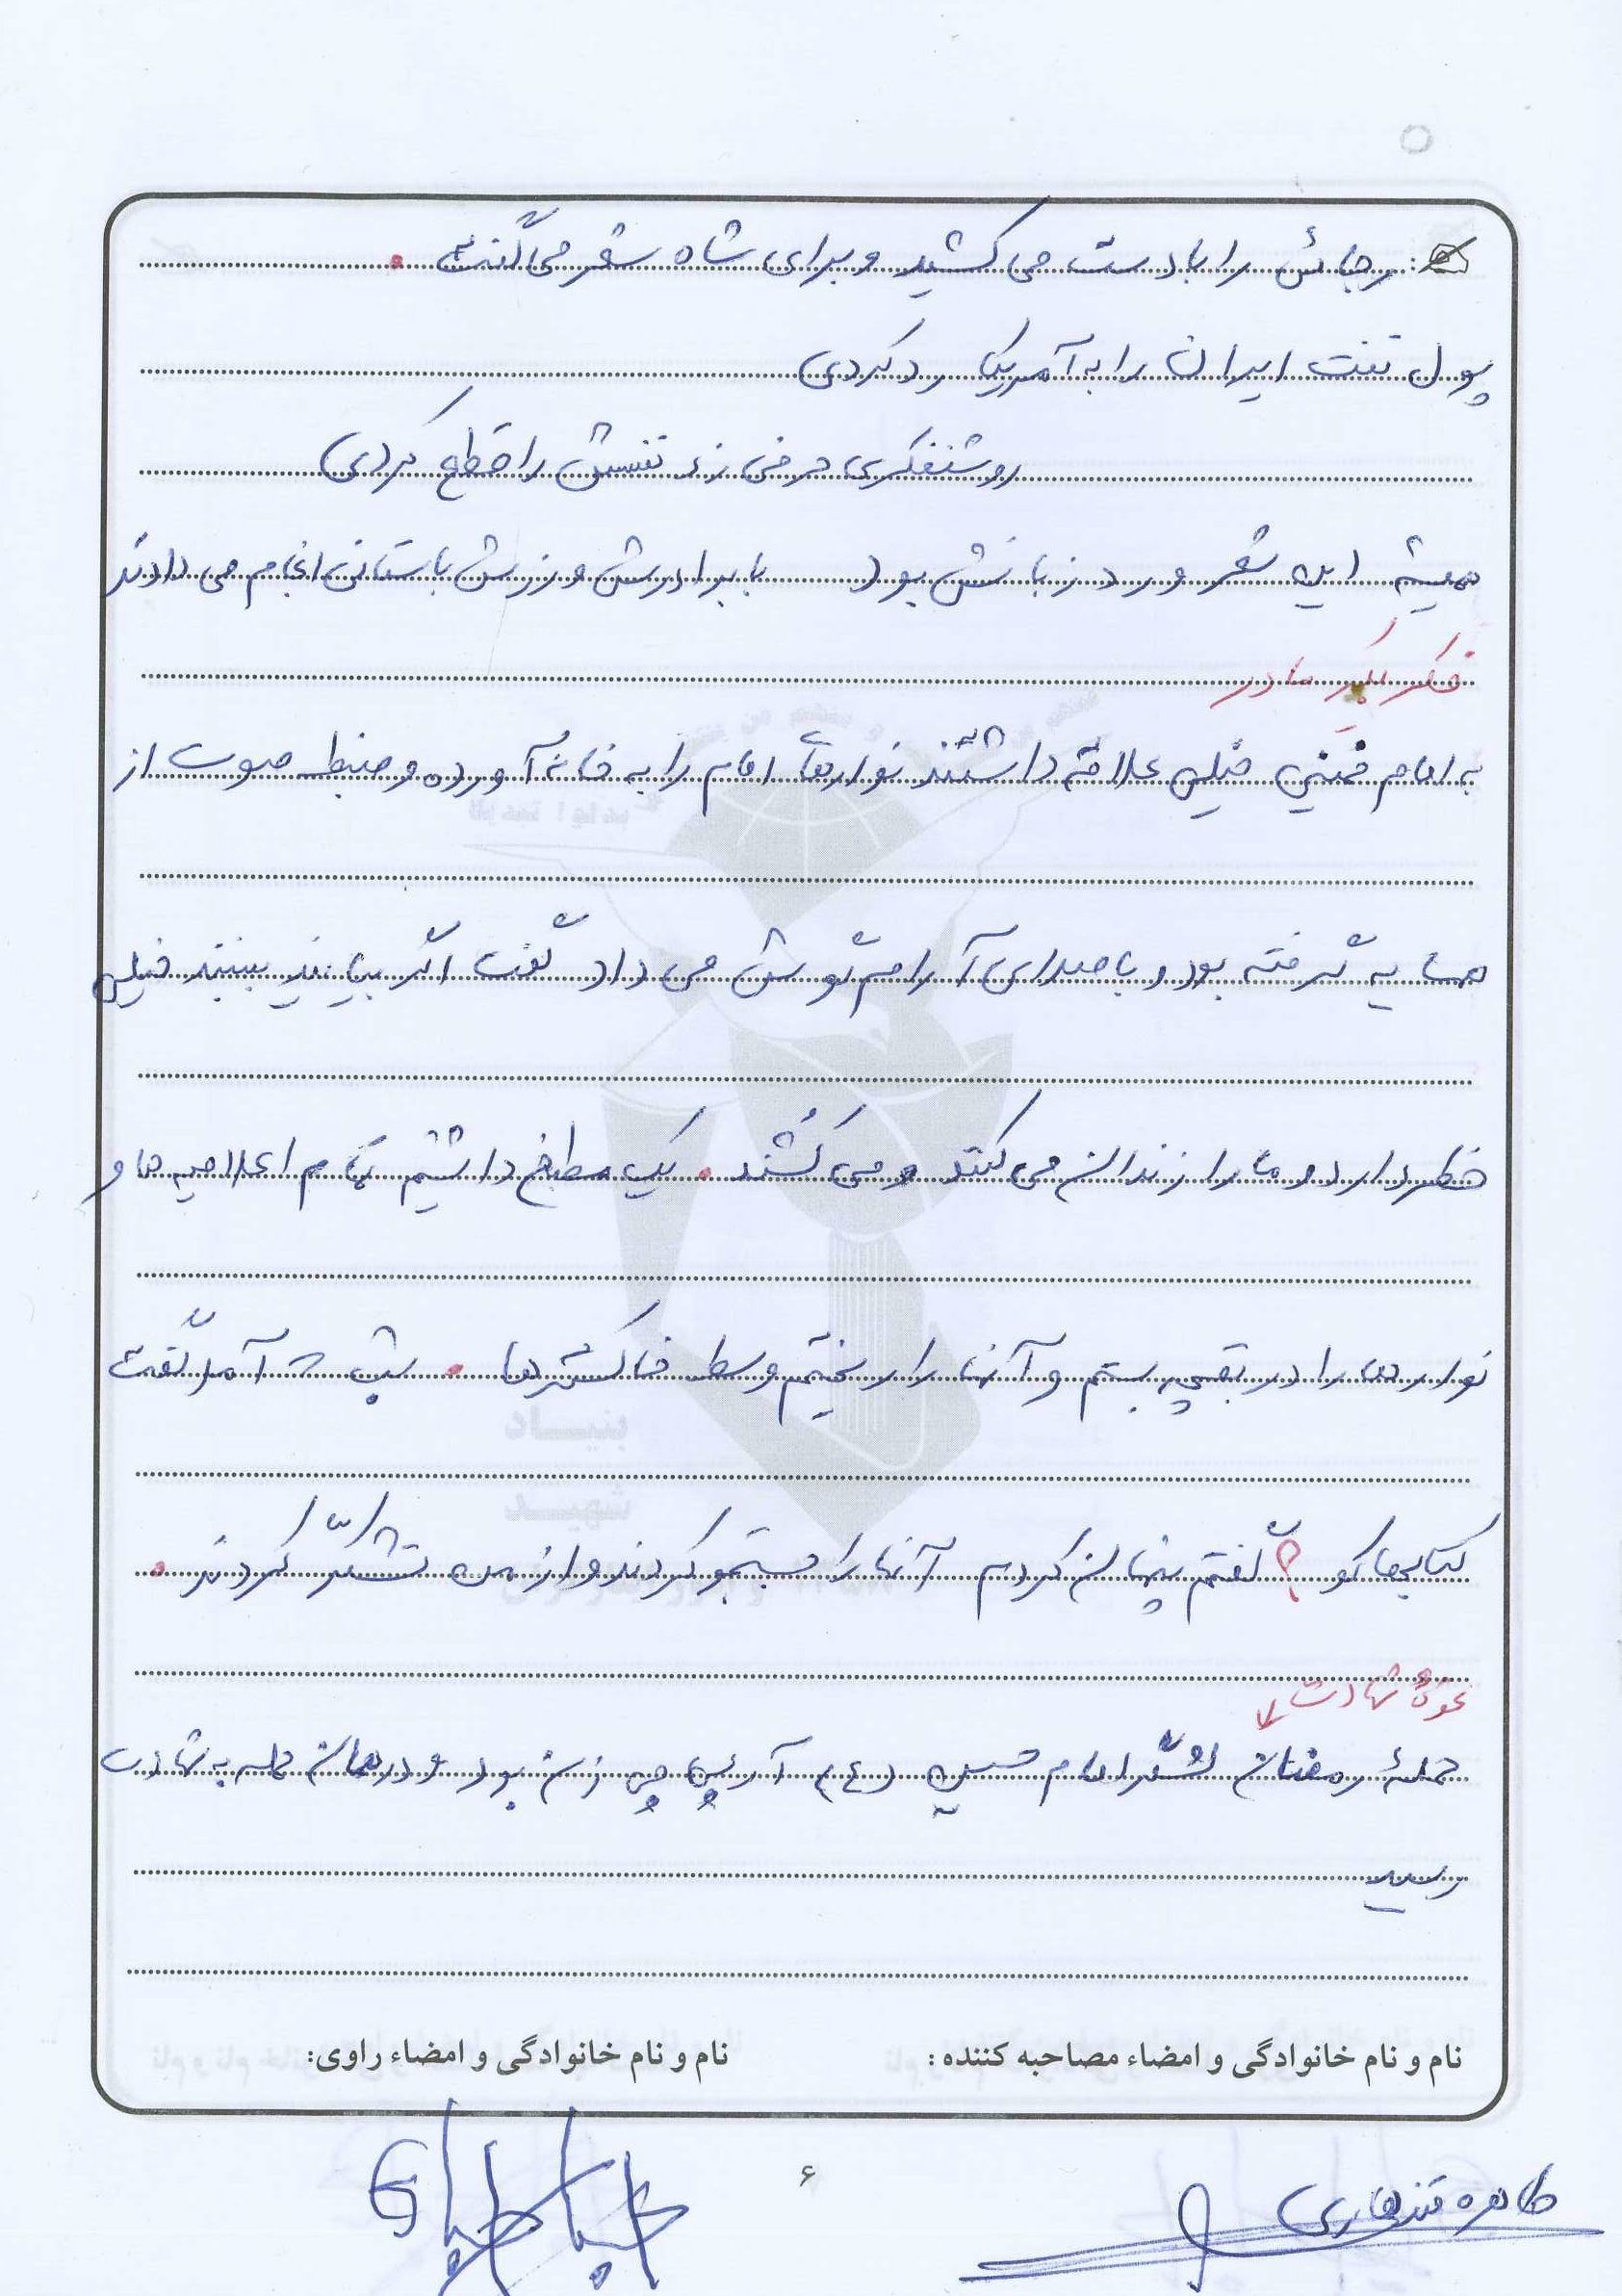 رجائی را با دست می کشید و برای شاه شعر می گفت .
پول نفت ایران را به آمریکا رد کردی
روشنفکری حرفی زد نفسش را قطع کردی
همیشه این شعر ورد زبانش بود با برادرش ورزش باستانی انجام می دادند
فکر مادر
به امام خمینی خیلی علاقه داشتند نوارهای امام را به خانه آورده و ضبط صوت از
همسایه گرفته بود و با صدای آرام گوش می داد گفت اگر بیایند ببینند خیلی
خطر دارد و ما را زندان می کنند و می کُشند . یک مطبخ داشتیم تمام اعلامیه ها و
نوارها را در بقچه بستم و آنها را ریختم وسط خاکسترها . شب که آمد گفت
کتابها کو ؟ گفتم پنهان کردم آنها را جستجو کردند و از من تشکّر کردند .
نحوهٔ شهادت
حملهٔ رمضان لشگر امام حسین (ع) آرپی چی زن بود و در همان حمله به شهادت
رسید
نام و نام خانوادگی و امضاء مصاحبه کننده : نام و نام خانوادگی و امضاء راوی:
۶
طاهره قندهاری